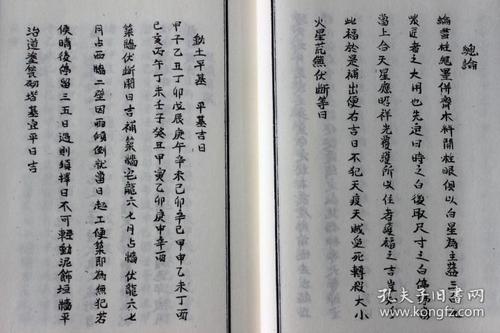 總論
論竪柱塊墨併鑿木料開柱眼俱以白星為主蓋三
匠者之大用也先定日時之白後取尺寸之白
當上合天星應昭祥光覆護所以住者獲福之吉
此福於是補出便右吉日不犯天瘟天賊受死轉殺大小
火星荒蕪伏斷等日
動土平基 平基吉日
甲子乙丑丁卯戊辰庚午辛未己卯辛巳甲申乙未丁酉
己亥丙午丁未壬子癸丑甲寅乙卯庚申辛酉
築牆伏斷閉日吉補築牆宅龍六七月占牆伏龍六七
月占西牆二壁因雨傾倒就當日起工便築即為無犯若
候晴後停留三五日過則須擇日不可輕動泥飾垣牆平
治道塗甃砌堦基宜平日吉
孔夫子旧书网
www.kongfz.com